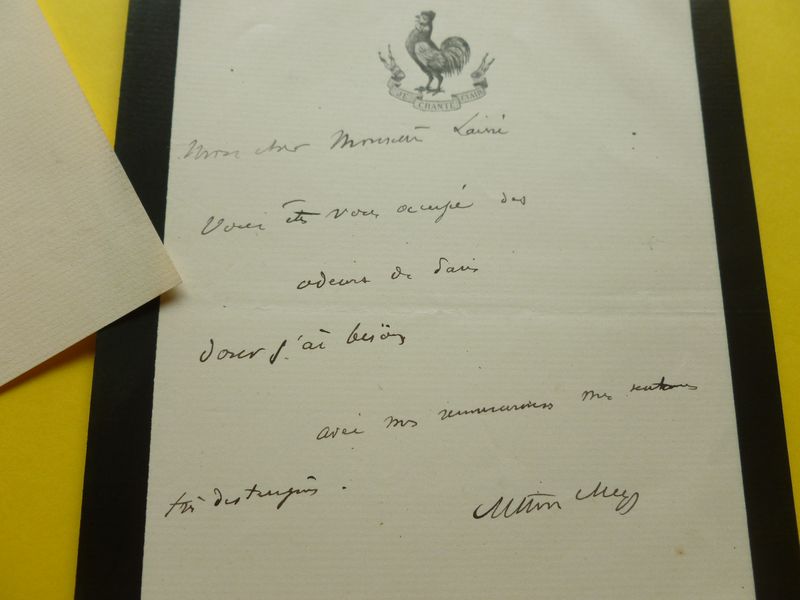 JE CHANTE CLAIR
Mon cher Monsieur
Vous êtes vous occupé des
odeurs de Paris
dont j'ai besoin
avec mes remerciements mes
très distingués.